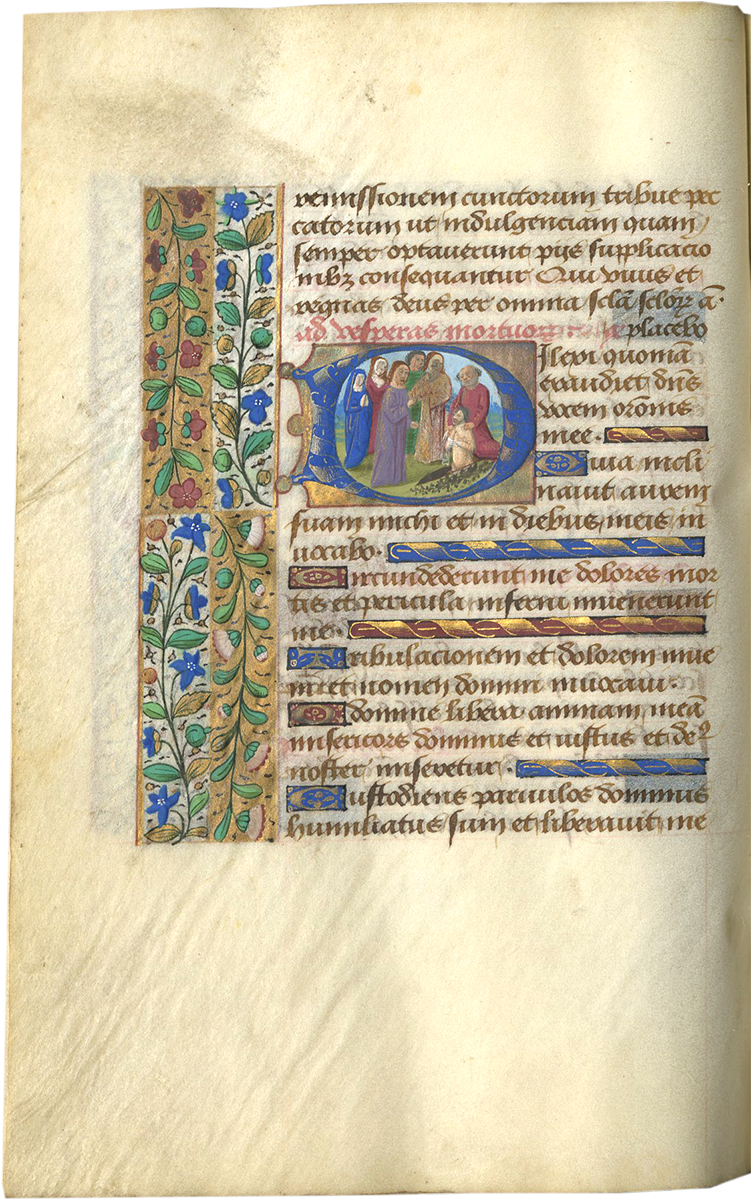 remissionem cunctorum tribue pec
catorum ut indulgenciam quam
semper optauerunt pijs supplicacio
nibz consequantur Qui viuis et
regnas deus per omnia scla sclorz a.
ad vesperas mortuorz placebo
Dilexi quoniã
exaudiet dns
vocem orõnis
mee.
Quia incli
nauit aurem
suam michi et in diebus meis in
uocabo.
Circundederunt me dolores mor
tis et pericula inferni inuenerunt
me.
Tribulacionem et dolorem inue
ni et nomen domini inuocaui.
O domine libera animam meã
misericors dominus et iustus et de9
noster miseretur.
Custodiens paruulos dominus
humiliatus sum et liberauit me